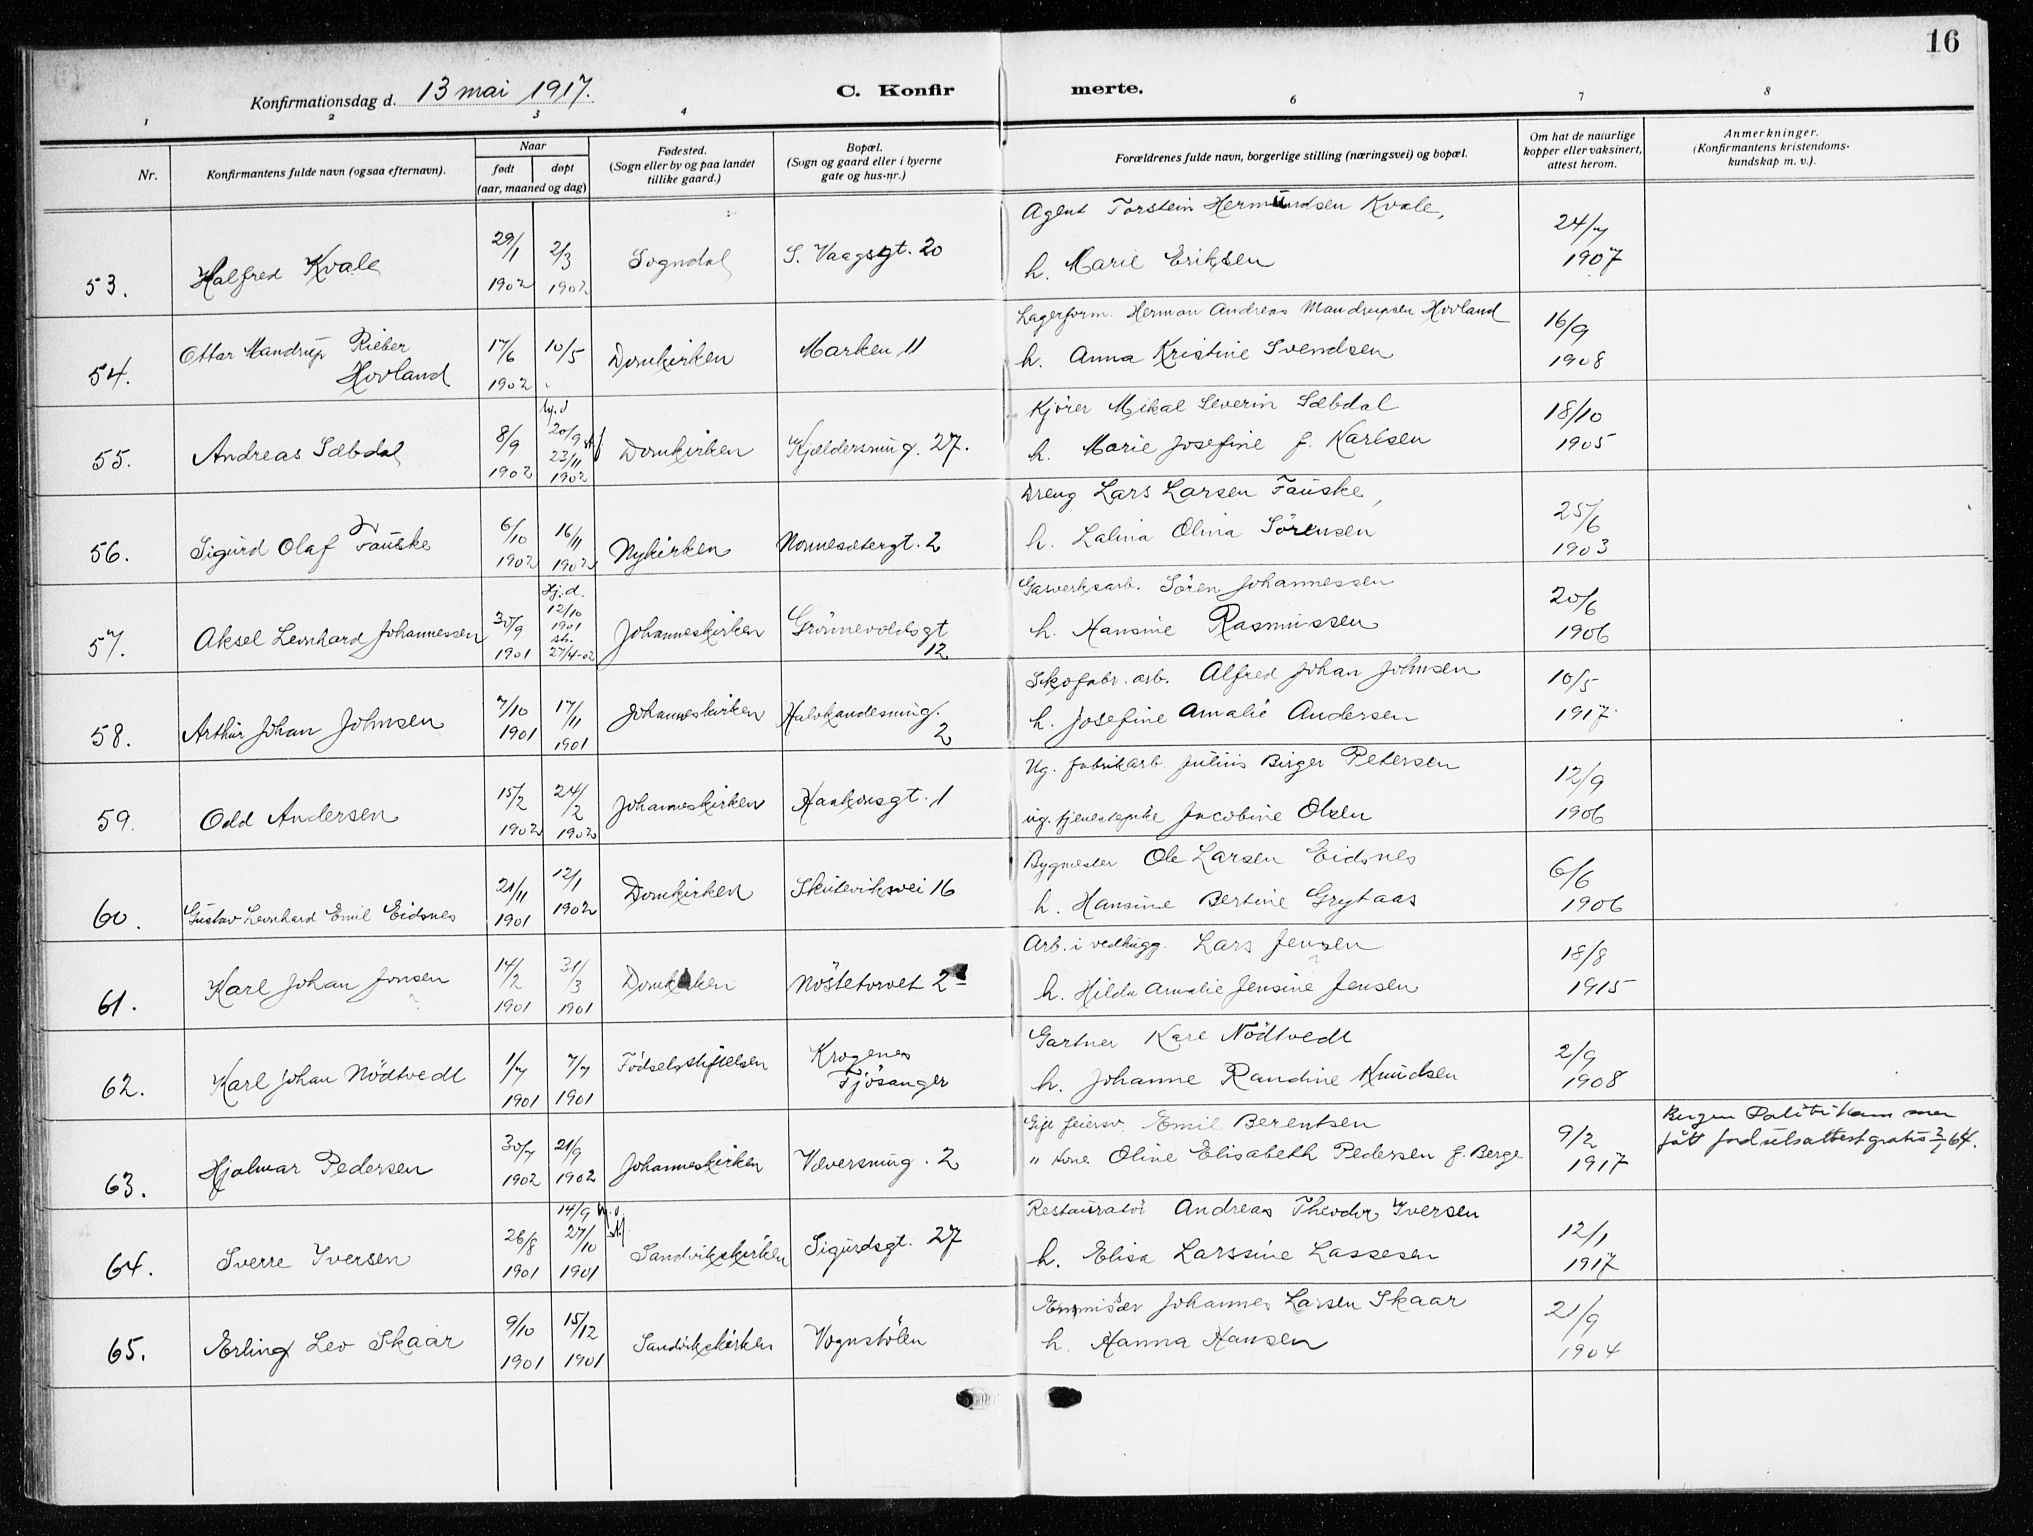 16
Konfirmationsdag d. 13 mai 1917.
C. Konfirmerte.
1 2 3 4 6 7 8
Nr.
Konfirmantens fulde navn (ogsaa efternavn).
Naar
født døpt
(aar, maaned og dag)
Fødested.
(Sogn eller by og paa landet
tillike gaard.)
Bopæl.
(Sogn og gaard eller i byerne
gate og hus-nr.)
Forældrenes fulde navn, borgerlige stilling (næringsvei) og bopæl.
Om hat de naturlige
kopper eller vaksinert,
attest herom.
Anmerkninger.
(Konfirmantens kristendoms-
kundskap m. v.).
53. Halfred Kvale 29/1 1902 2/3 1902 Sogndal S. Vaagsgt. 20
Agent Torstein Hermundsen Kvale,
h. Marie Eriksen
24/7 1907
54. Ottar Mandrup Rieber
Hovland
17/6 1902 10/5 Domkirken Marken 11
Lagerform. Herman Andreas Mandrupsen Hovland
h. Anna Kristine Svendsen
16/9 1908
55. Andreas Sæbdal 8/9 1902 hj. d 20/9 st 23/11 1902 Domkirken Kjeldersmug. 27.
Kjører Mikal Severin Sæbdal
h. Marie Josefine f. Karlsen
18/10 1905
56. Sigurd Olaf Fauske 6/10 1902 16/11 1902 Nykirken Nonnesætergt. 2
Dreng Lars Larsen Fauske,
h. Lalina Olina Sörensen
25/6 1903
57. Aksel Leonhard Johannessen 30/9 1901 Hj. d. 12/10 1901 st. 27/4-02 Johanneskirken Grönnevoldsgt
12
Gasverksarb. Sören Johannessen
h. Hansine Rasmussen
20/6 1906
58. Arthur Johan Johnsen 7/10 1901 17/11 1901 Johanneskirken Halvkandesmug.
2
Skofabr. arb. Alfred Johan Johnsen
h. Josefine Amalie Andersen
10/5 1917
59. Odd Andersen 15/2 1902 24/2 1902 Johanneskirken Haakonsgt. 1
Ug. fabrikarb. Julius Birger Petersen
ug. tjenestepike Jacobine Olsen
12/9 1906
60. Gustav Leonhard Emil Eidsnes 21/11 1901 12/1 1902 Domkirken Skuteviksvei 16
Bygmester Ole Larsen Eidsnes
h. Hansine Bertine Grytaas
6/6 1906
61. Karl Johan Jonsen 14/2 1901 31/3 1901 Domkirken Nöstetorvet 2
Arb. i vedhugg. Lars Jensen
h. Hilda Amalie Jensine Jensen
18/8 1915
62. Karl Johan Nödtvedt 1/7 1901 7/7 1901 Fødselsstiftelsen Krogenes
Fjösanger
Gartner Karl Nödtvedt
h. Johanne Randine Knudsen
2/9 1908
63. Hjalmar Pedersen 30/7 1902 21/9 1902 Johanneskirken Væversmug. 2
Gift feiersv. Emil Berentsen
" kone Oline Elisabeth Pedersen f. Berge
9/2 1917
Bergen Politikam mer
fått fødselsattest gratis 2/7 64.
64. Sverre Iversen 26/8 1901 14/9 hj. d. 27/10 st 1901 Sandvikskirken Sigurdsgt. 27
Restauratör Andreas Theodor Iversen
h. Elisa Larssine Lassesen
12/1 1917
65. Erling Leo Skaar 9/10 1901 15/12 1901 Sandvikskirken Vognstölen
Emissær Johannes Larsen Skaar
h. Hanna Hansen
21/9 1904